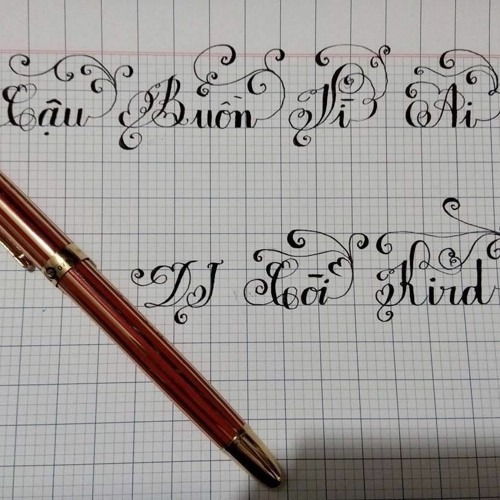 Cậu Buồn Vì Ai
DJ Còi Kird